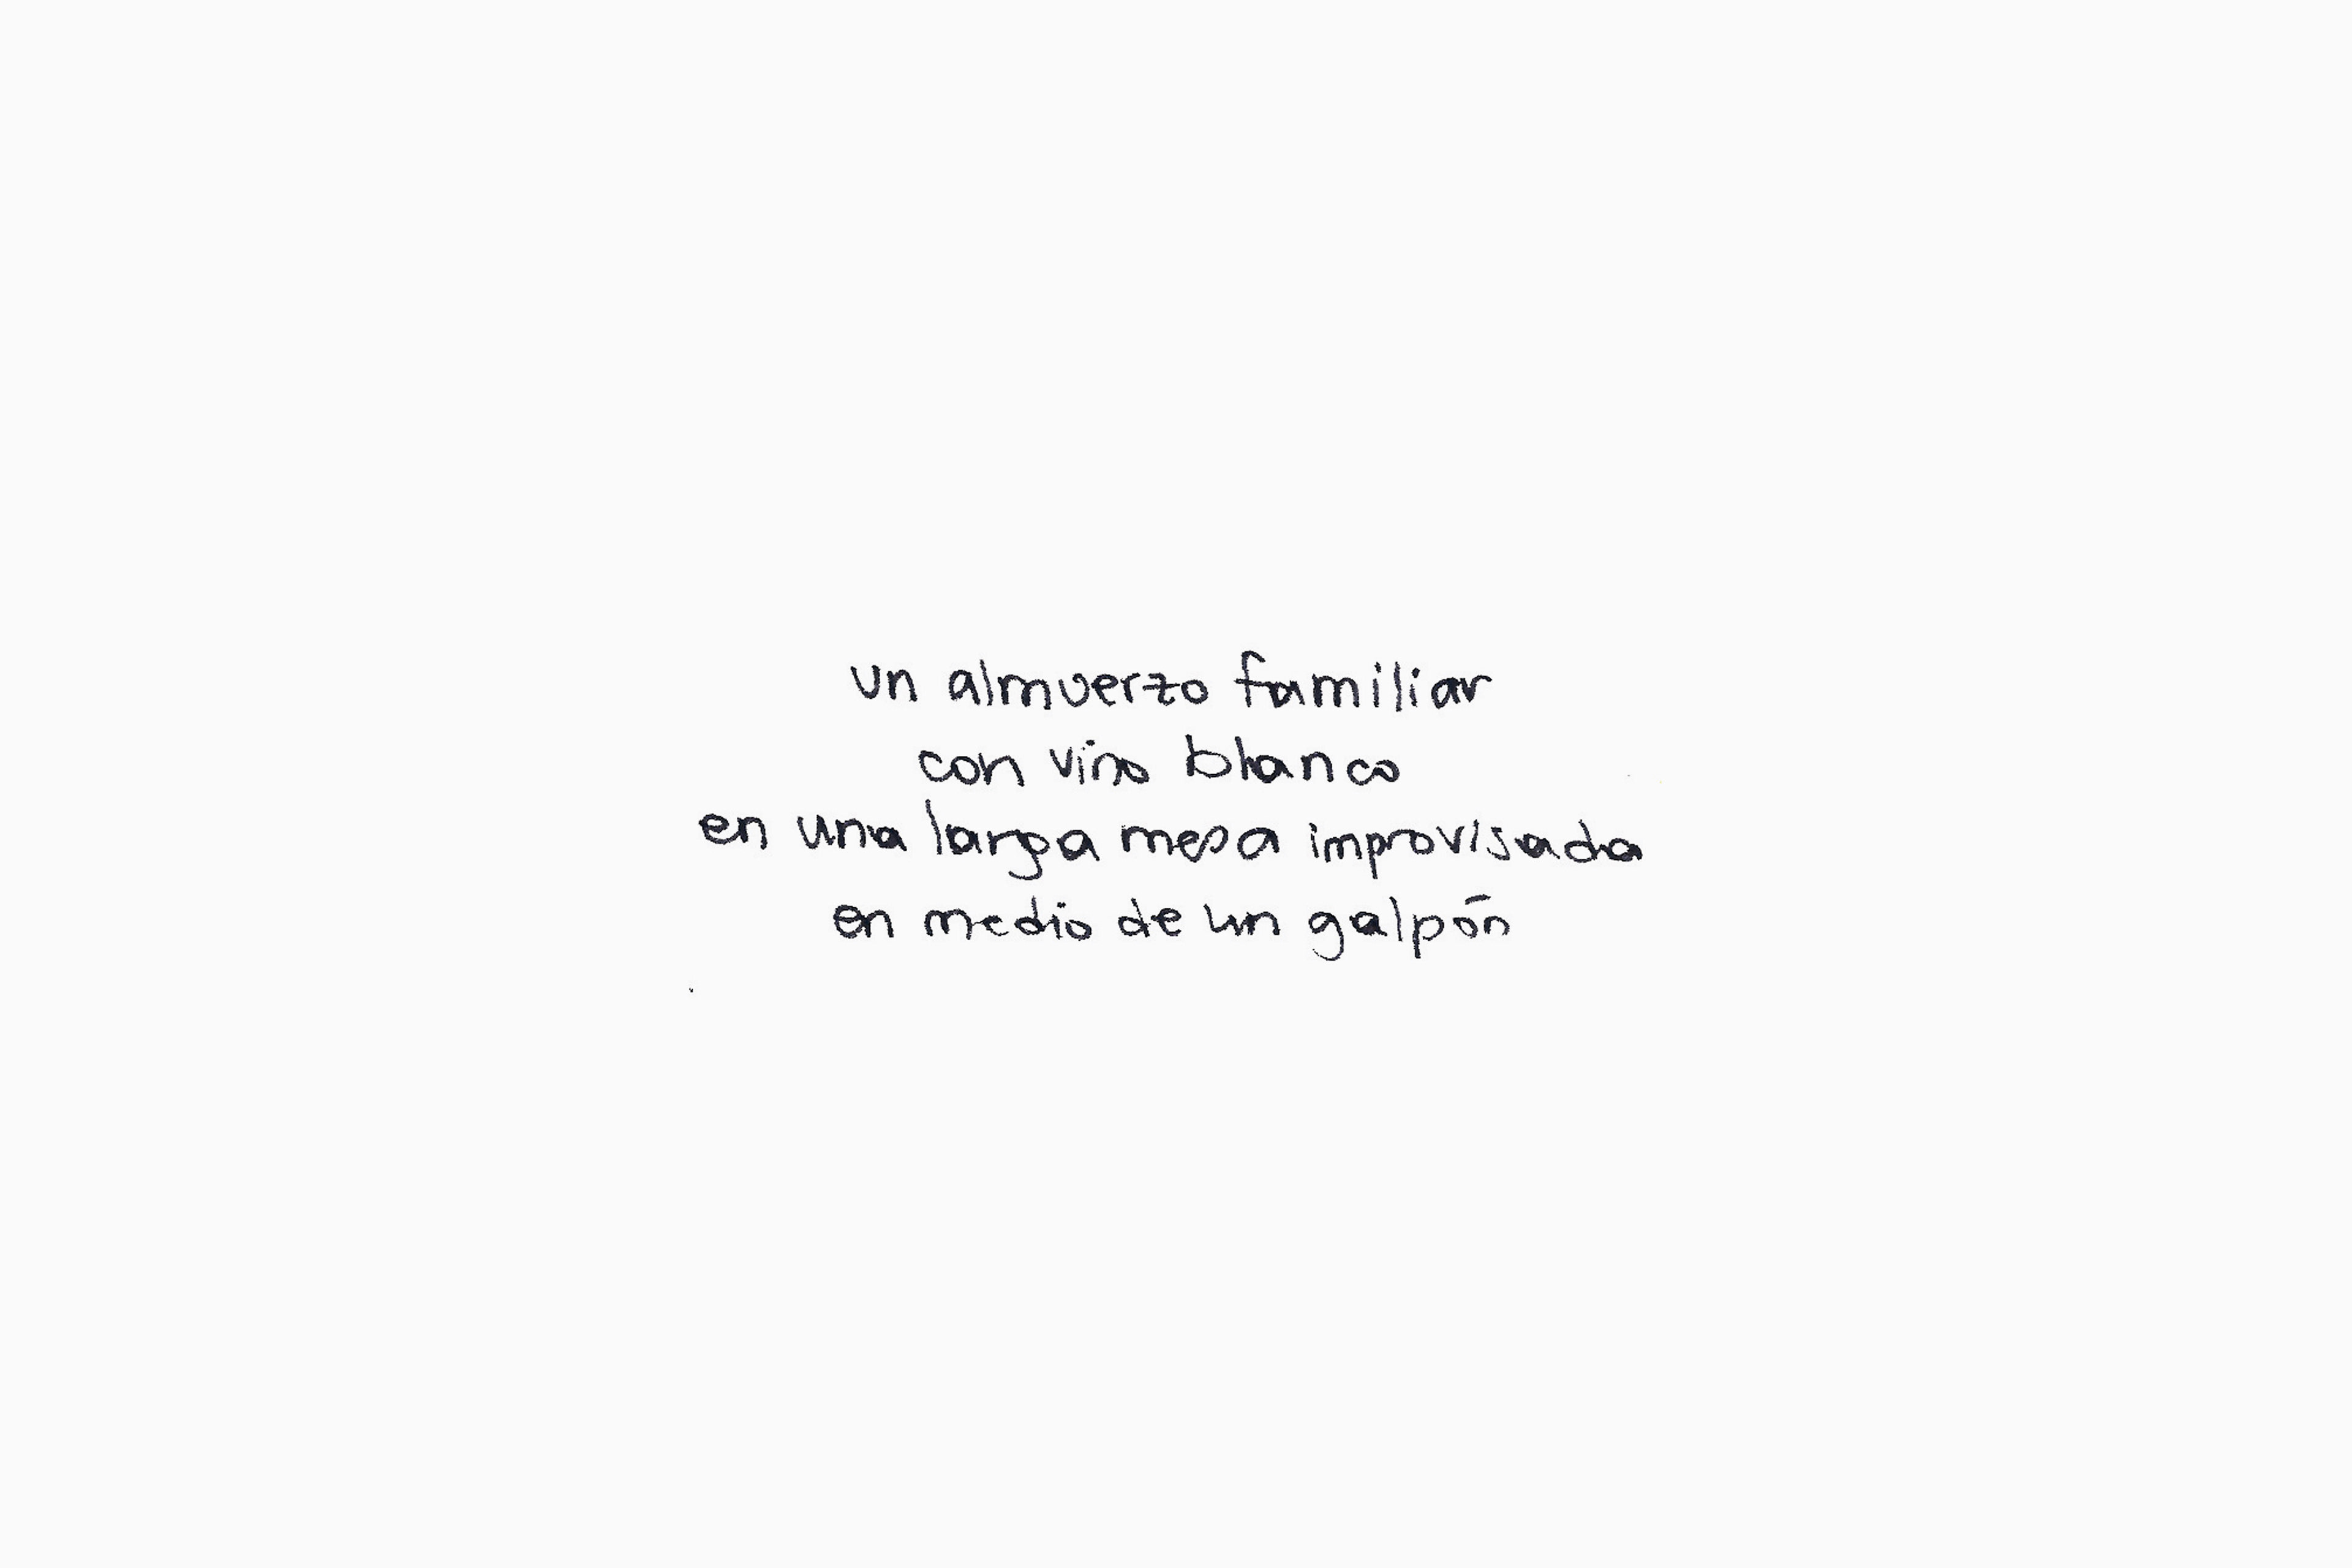 un almuerzo familiar
con vino blanco
en una larga mesa improvisada
en medio de un galpón